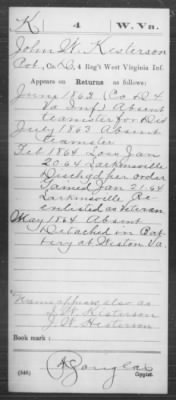 K 4 W. Va.
John W. Kesterson
Pvt, Co. D, 4 Reg't West Virginia Inf.
Appears on Returns as follows:
June 1863 (Co D 4
Va Inf) Absent
teamster for
July 1863 Absent
teamster
Feb 1864 Loss Jan
20.64 Larkinsville
Dischgd per order
Gained Jan 21.64
Larkinsville Re-
enlisted as Veteran
May 1864 Absent
Detached in Bat-
tery at Weston Va.
Name appears also as
J. W. Kisterson
J. W. Hesterson
Book mark:
(546) Copyist.